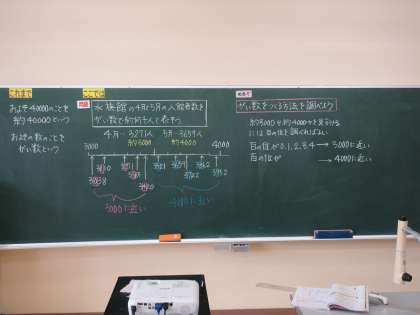 これまで
およそ40000のことを
約40000という
およその数のことを
がい数という
ここでは
問題
水族館の4月と5月の入館者数を
がい数で約何千人と表そう
4月…3271人
5月…3659人
約3000
約4000
3000
4000
3000に近い
4000に近い
がい数をつくる方法を調べよう
約3000か約4000かを見分ける
には百の位を調べればよい
百の位が0.1.2.3.4 → 3000に近い
百の位が → 4000に近い